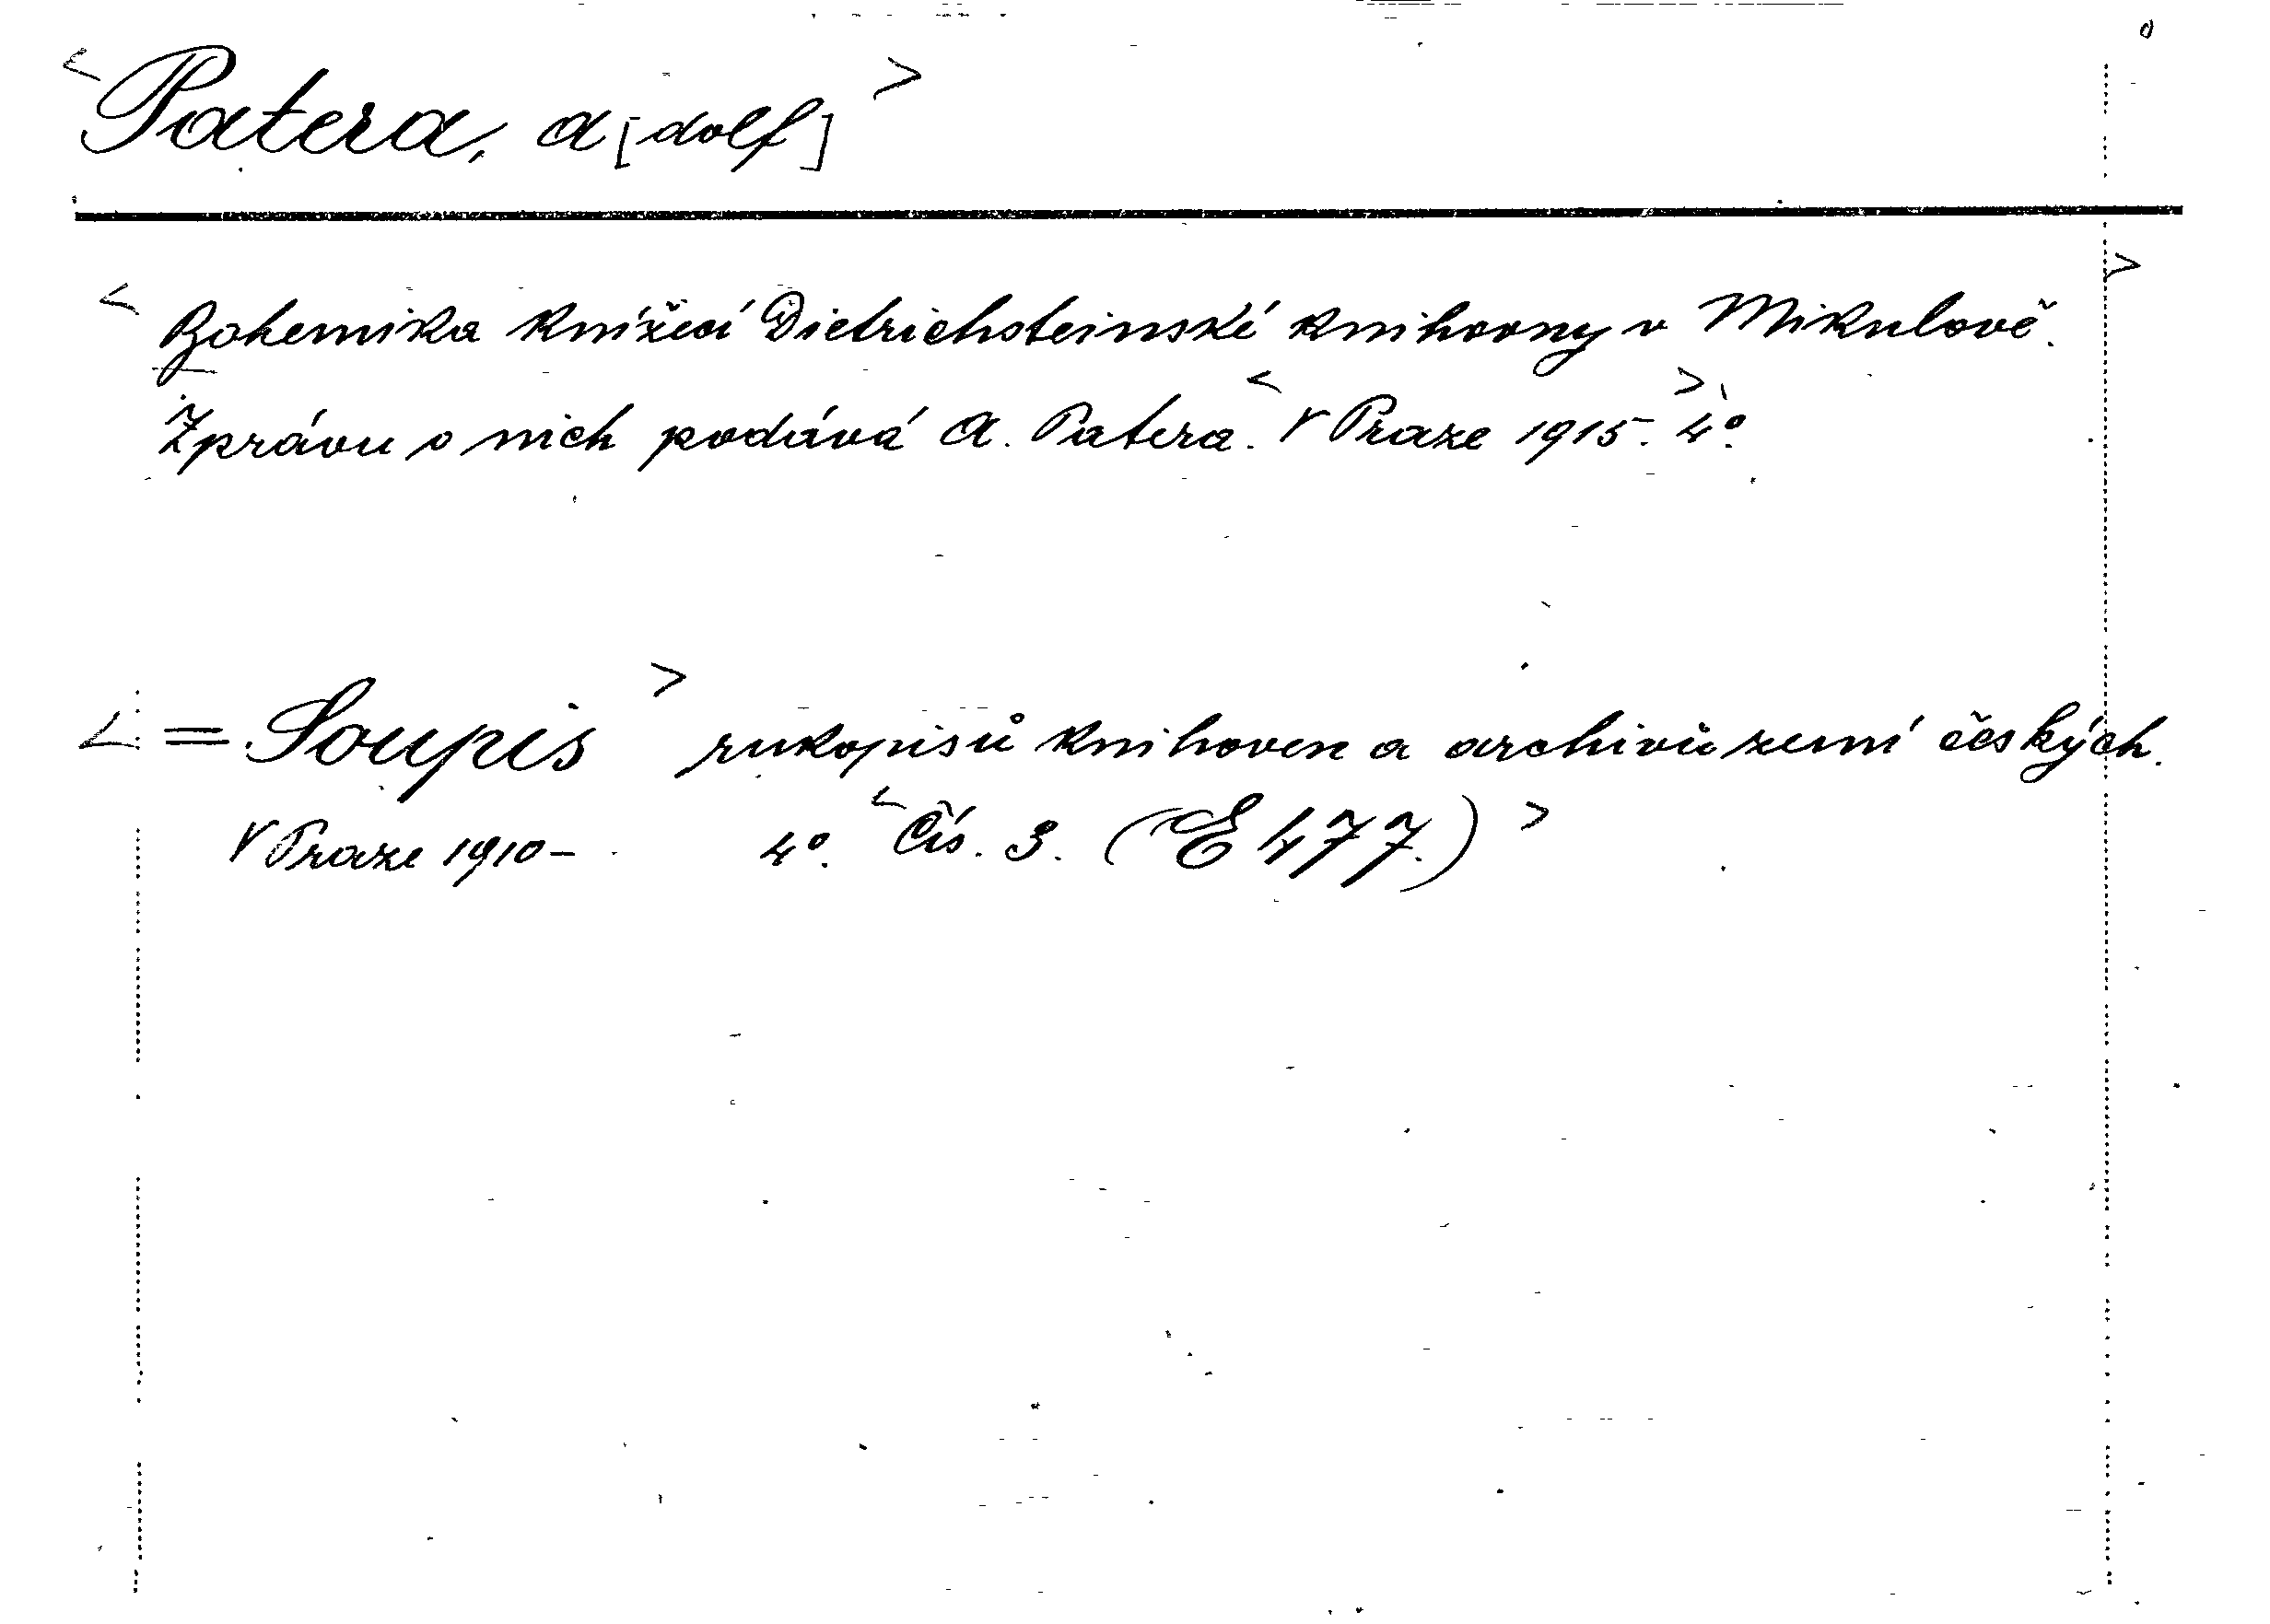 <Patera, A[dolf]>
<Bohemika knížecí Dietrichsteinské knihovny v Mikulově.>
Zprávu o nich podává A. Patera. <V Praze 1915.> 4°.
<=Soupis> rukopisů knihoven a archivů zemí českých.
V Praze 1910- 4°. <Čís. 3. (E 477.)>